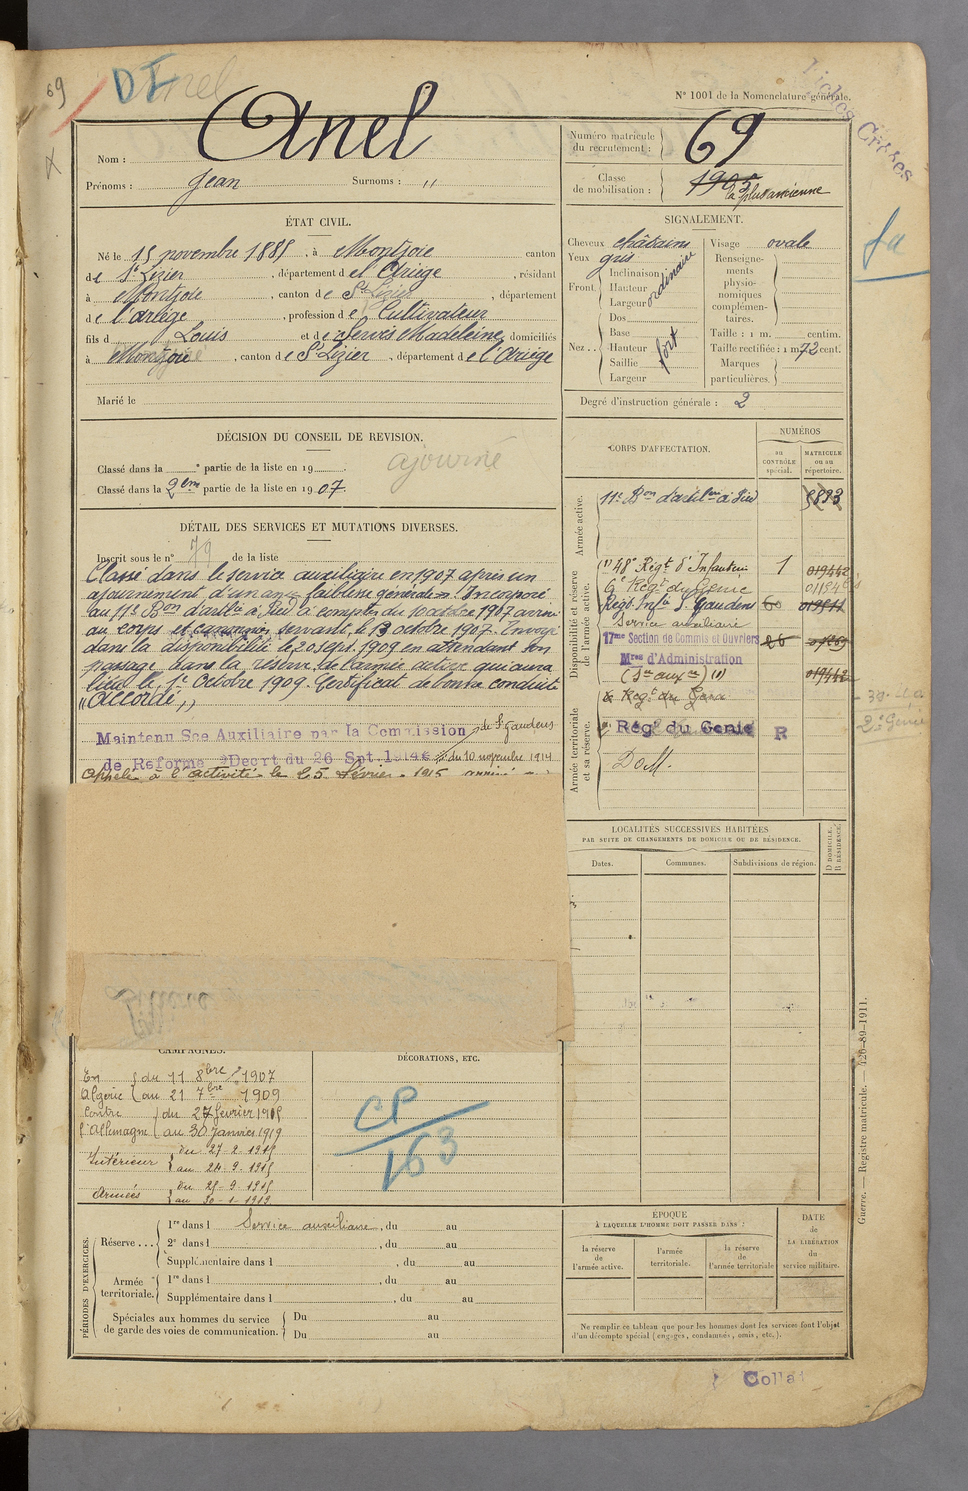 69
DI
Anel
N° 1001 de la Nomenclature générale.
Fiches Croisées
Nom : Anel
Prénoms : Jean Surnoms : "
Numéro matricule du recrutement : 69
Classe de mobilisation : 1905 la plus ancienne
ÉTAT CIVIL.
Né le 15 novembre 1885, à Montjoie canton
de St Lizier, département de l'Ariège, résidant
à Montjoie, canton de St Lizier, département
de l'Ariège, profession de Cultivateur
fils d Louis et de Servès Madeleine domiciliés
à Montjoie, canton de St Lizier, département de l'Ariège
Marié le
SIGNALEMENT.
Cheveux châtains
Yeux gris
Front. Inclinaison Hauteur Largeur ordinaire
Nez.. Dos Base Hauteur Saillie Largeur fort
Visage ovale
Renseignements physionomiques complémentaires.
Taille : 1 m. centim.
Taille rectifiée : 1 m 72 cent.
Marques particulières.
Degré d'instruction générale : 2
fa
DÉCISION DU CONSEIL DE REVISION.
Classé dans la ° partie de la liste en 19
ajourné
Classé dans la 2ème partie de la liste en 1907.
DÉTAIL DES SERVICES ET MUTATIONS DIVERSES.
Inscrit sous le n° 79 de la liste
Classé dans le service auxiliaire en 1907 après un
ajournement d'un an faiblesse générale. Incorporé
au 11e Bon d'artie à Pied à compter du 10 octobre 1907 arrivé
au corps et canonnier servant le 13 octobre 1907. Envoyé
dans la disponibilité le 20 sept. 1909 en attendant son
passage dans la réserve de l'armée active qui aura
lieu le 1er Octobre 1909. Certificat de bonne conduite
"Accordé"
Maintenu Sce Auxiliaire par la Commission de St Gaudens
de Reforme Décrt du 26 Spt. 1914 du 10 novembre 1914
Appelé à l'activité le 25 février 1915 arrivé
CORPS D'AFFECTATION.
NUMÉROS
au CONTRÔLE spécial.
MATRICULE ou au répertoire.
Armée active.
11e Bon d'artillerie à Pied 3893
Disponibilité et réserve de l'armée active.
(1) 48e Régt d'Infanterie 1 019442
6e Régt du Génie
Régt Infie St Gaudens 60
Service auxiliaire
17me Section de Commis et Ouvriers 26
Mres d'Administration
(Sce auxre) (1) 019442
Armée territoriale et sa réserve.
Régt du Génie
Rég' du Genie R
DoM.
2e Génie
LOCALITÉS SUCCESSIVES HABITÉES
PAR SUITE DE CHANGEMENTS DE DOMICILE OU DE RÉSIDENCE.
Dates. Communes. Subdivisions de région. D DOMICILE. R RÉSIDENCE.
CAMPAGNES.
En Algérie du 11 8bre 1907
au 21 7bre 1909
Contre l'Allemagne du 27 février 1915
au 30 janvier 1919
Intérieur du 27-2-1915
au 24-9-1915
Armées du 25-9-1915
au 30-1-1919
DÉCORATIONS, ETC.
CP
163
PÉRIODES D'EXERCICES.
Réserve... 1re dans l Service auxiliaire, du au
2e dans l , du au
Supplémentaire dans l , du au
Armée territoriale. 1re dans l , du au
Supplémentaire dans l , du au
Spéciales aux hommes du service de garde des voies de communication. Du au
Du au
ÉPOQUE
À LAQUELLE L'HOMME DOIT PASSER DANS :
la réserve de l'armée active. l'armée territoriale. la réserve de l'armée territoriale
DATE de LA LIBÉRATION du service militaire.
Ne remplir ce tableau que pour les hommes dont les services font l'objet
d'un décompte spécial (engagés, condamnés, omis, etc.).
Guerre. — Registre matricule. — 426-89-1911.
Collat